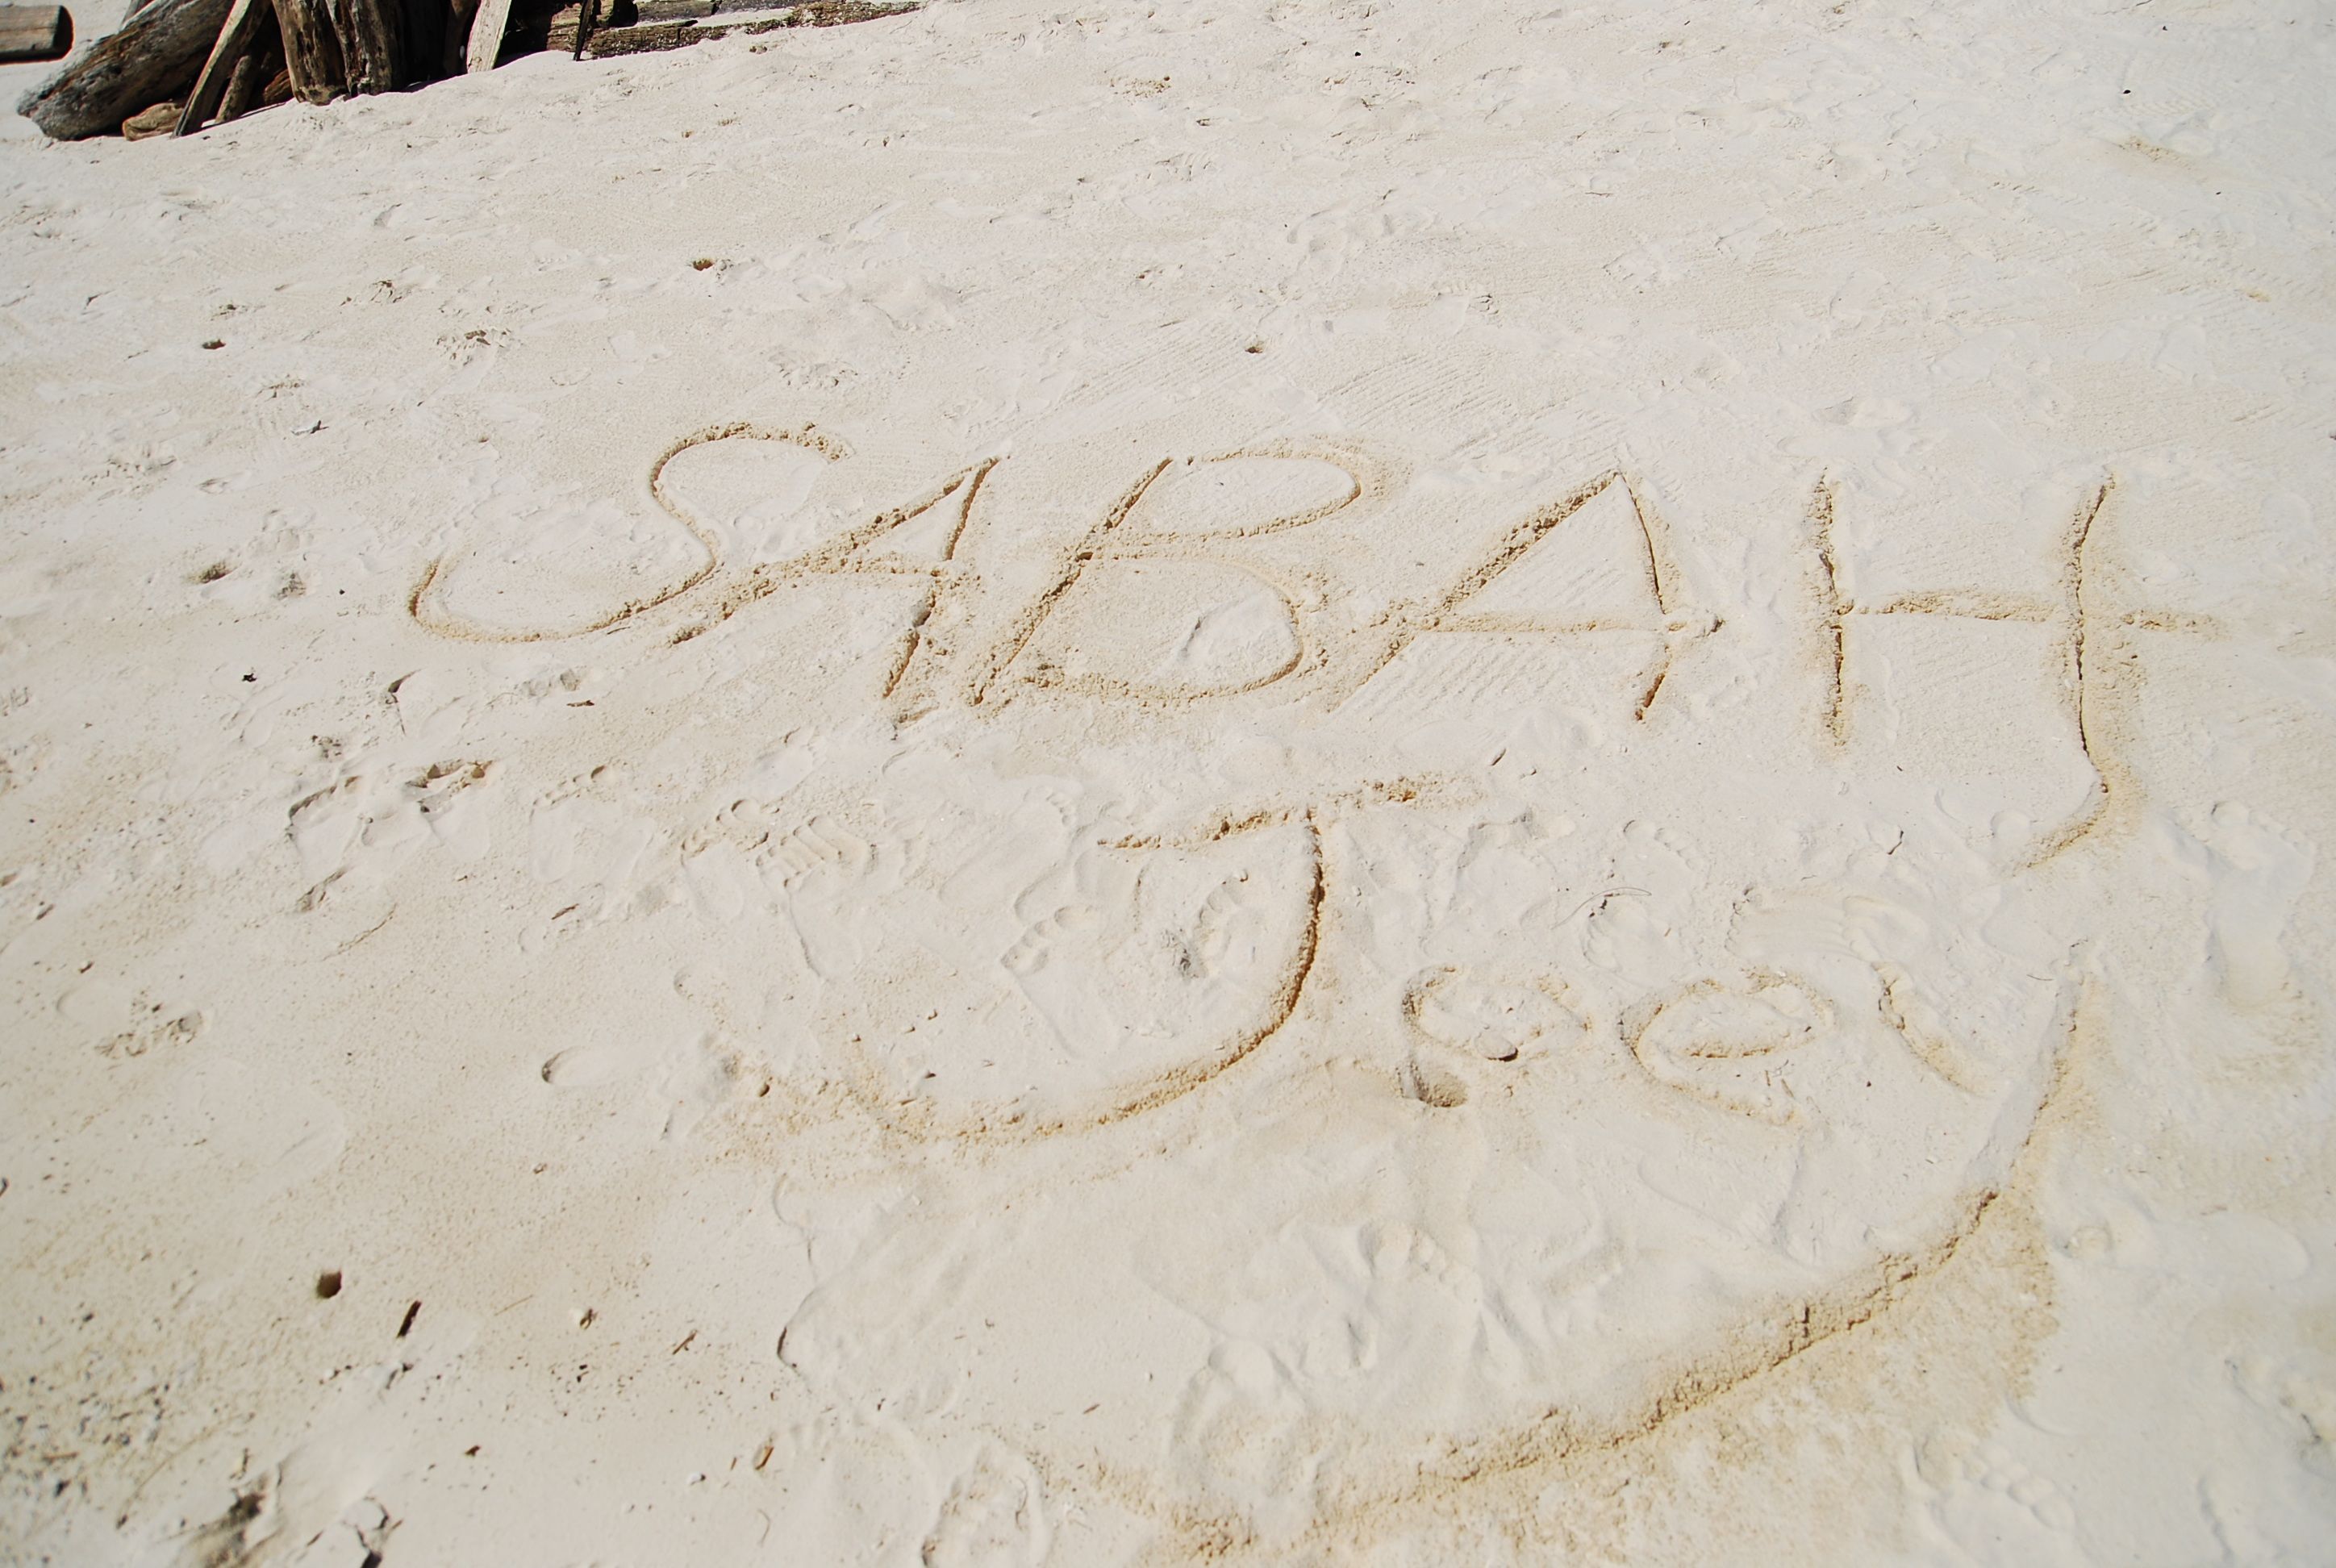 SABAH
Joey